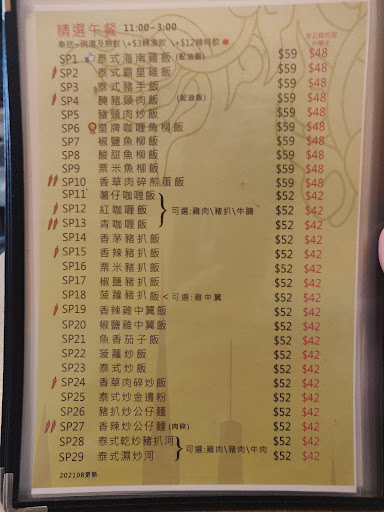 精選午餐 11:00-3:00
奉送-例湯及熱飲\+$3轉凍飲\+$12轉特飲
SP1 泰式海南雞飯 (配油飯) $59 $48
SP2 泰式霸皇雞飯 $59 $48
SP3 泰式豬手飯 $59 $48
SP4 醃豬頸肉飯 (配油飯) $59 $48
SP5 豬頸肉炒飯 $59 $48
SP6 皇牌咖喱魚柳飯 $59 $48
SP7 椒鹽魚柳飯 $59 $48
SP8 酸甜魚柳飯 $59 $48
SP9 粟米魚柳飯 $59 $48
SP10 香草肉碎煎蛋飯 $59 $48
SP11 薯仔咖喱飯 $52 $42
SP12 紅咖喱飯 可選:雞肉\豬扒\牛腩 $52 $42
SP13 青咖喱飯 $52 $42
SP14 香茅豬扒飯 $52 $42
SP15 香辣豬扒飯 $52 $42
SP16 粟米豬扒飯 $52 $42
SP17 椒鹽豬扒飯 $52 $42
SP18 菠蘿豬扒飯 <可選:雞中翼 $52 $42
SP19 香辣雞中翼飯 $52 $42
SP20 椒鹽雞中翼飯 $52 $42
SP21 魚香茄子飯 $52 $42
SP22 菠蘿炒飯 $52 $42
SP23 泰式炒飯 $52 $42
SP24 香草肉碎炒飯 $52 $42
SP25 泰式炒金邊粉 $52 $42
SP26 豬扒炒公仔麵 $52 $42
SP27 香辣炒公仔麵 (肉碎) $52 $42
SP28 泰式乾炒豬扒河 $52 $42
SP29 泰式濕炒河 可選:雞肉\豬肉\牛肉 $52 $42
202108更新